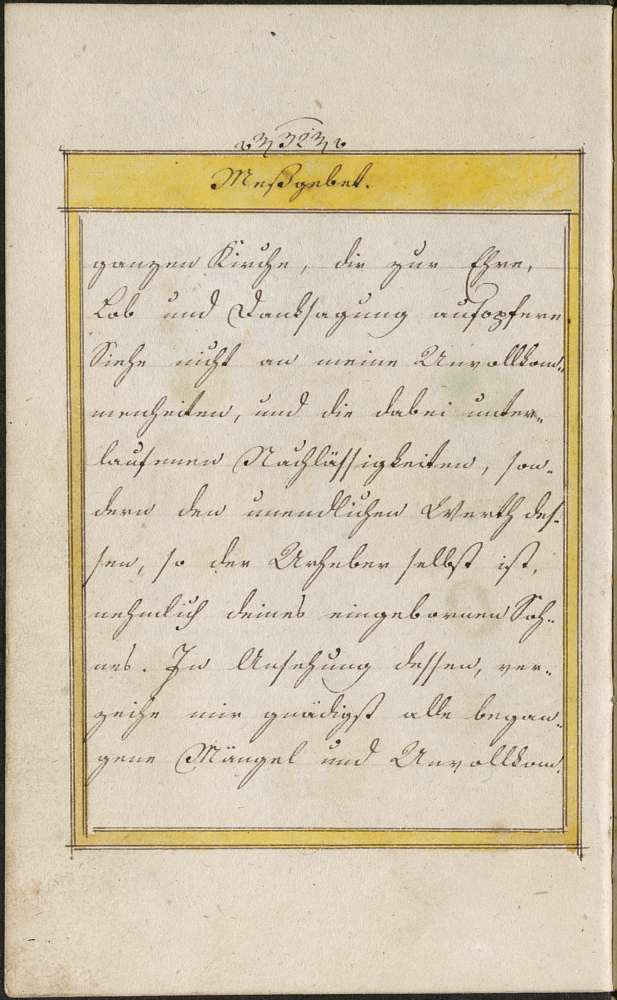 32
Meßgebet.
ganzen Kirche, dir zur Ehre,
Lob und Danksagung aufopfere
Siehe nicht an meine Unvollkom„
menheiten, und die dabei unter„
laufenen Nachlässigkeiten, son„
dern den unendlichen Werth des„
sen, so der Urheber selbst ist,
nehmlich deines eingebornen Soh„
nes. In Ansehung dessen, ver„
zeihe mir gnädigst alle began„
gene Mängel und Unvollkom„